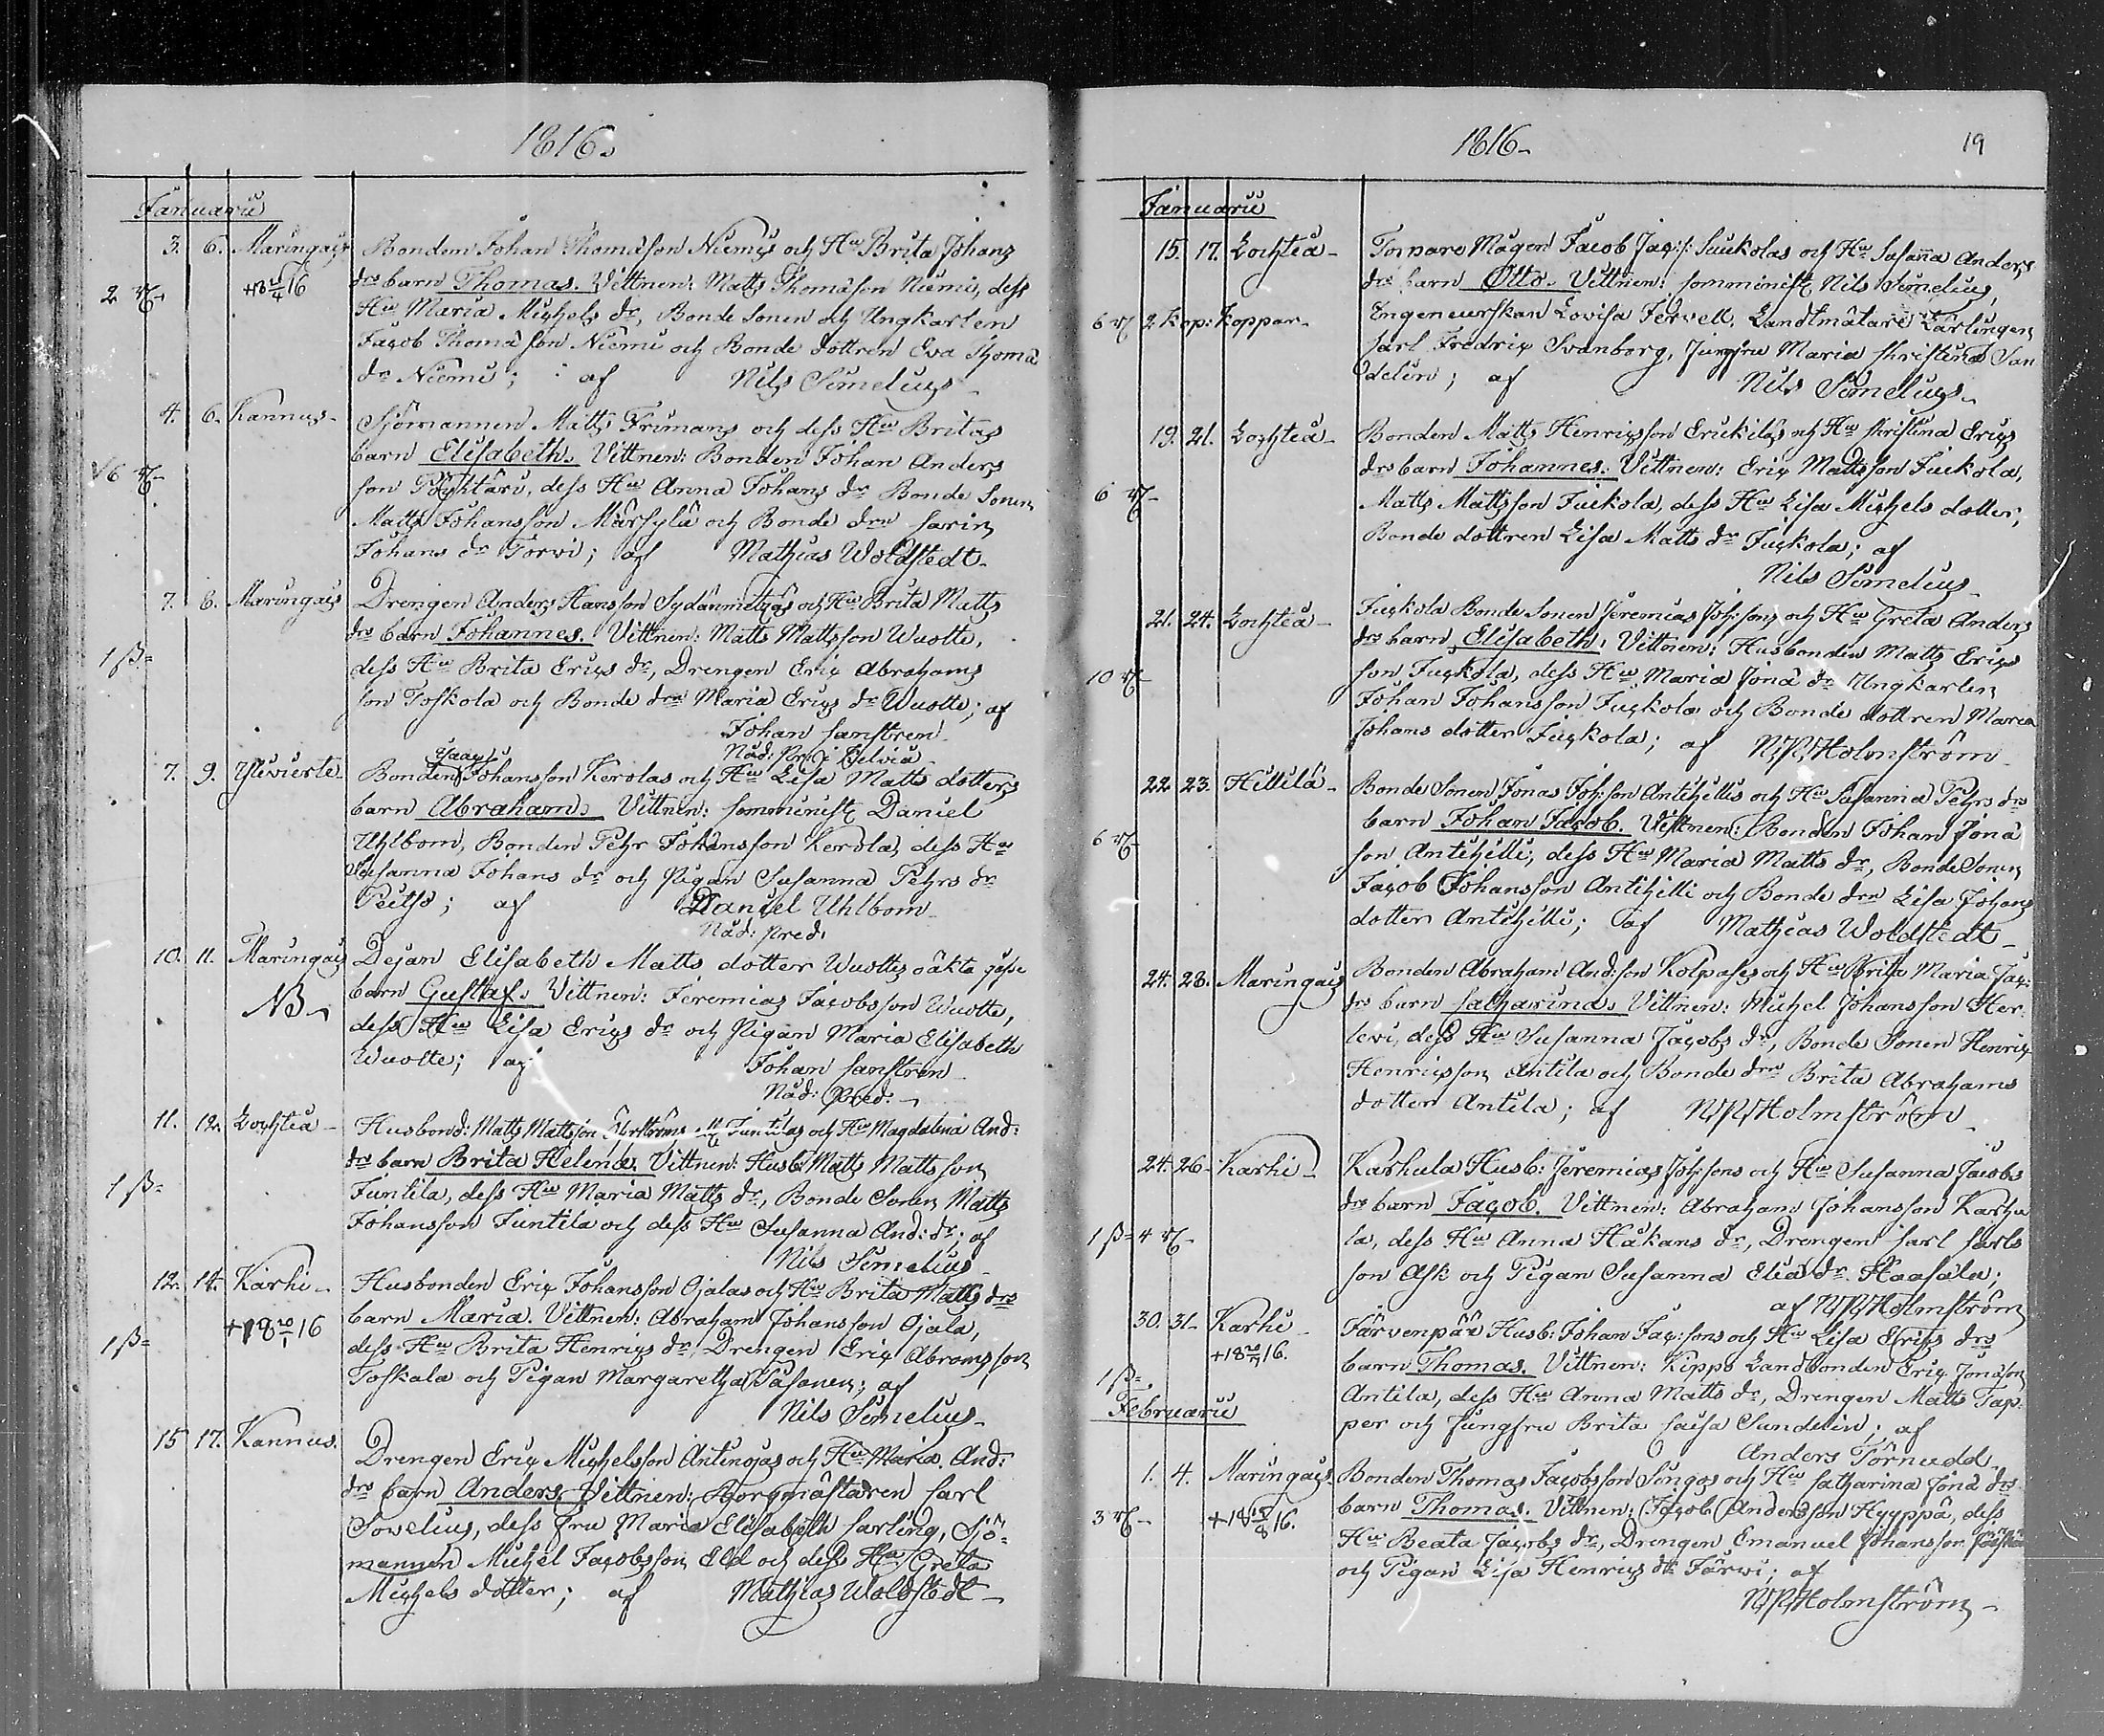 1816.
Januarii
3. 6. Maringais Bonden Johan Thomasson Niemis och Hu Brita Johans
+18 4/4 16 drs barn Thomas. Vittnen: Matts Thomasson Niemi, dess
2 rß Hu Maria Michels dr, Bonde Sonen och Ungkarlen
Jacob Thomasson Niemi och Bonde dottren Eva Thomæ
dr Niemi; af Nils Simelius
4. 6. Kannus Sjömannen Matts Frimans och dess Hu Britas
barn Elisabeth. Vittnen: Bonden Johan Anders
16 rß son Pöyktäri, dess Hu Anna Johans dr Bonde Sonen
Matts Johansson Märsylä och Bonde drn Carin
Johans dr Torvi; af Mathias Woldstedt
7. 8. Maringais Drengen Anders Hansson Sydänmetzäs och Hu Brita Matts
drs barn Johannes. Vittnen: Matts Mattsson Wuotte,
1 ß dess Hu Brita Erics dr, Drengen Eric Abrahams
son Toskola och Bonde drn Maria Erics dr Wuotte; af
Johan Canstren
Nåd: Pr: i Elvia
7. 9. Ylivierte Bonden Isaac Johansson Kerolas och Hu Lisa Matts dotters
barn Abraham. Vittnen: Comminist Daniel
Uhlbom, Bonden Pehr Johansson Kerola, dess Hu
Susanna Johans dr och Pigan Susanna Pehrs dr
Peitso; af Daniel Uhlbom
Nåd: pred:
10. 11. Maringais Dejan Elisabeth Matts dotter Wuottes oäkta gosse
NB barn Gustaf. Vittnen: Jeremias Jacobsson Wuotte,
dess Hu Lisa Erics dr och Pigan Maria Elisabeth
Wuotte; af Johan Canstren
Nåd: Pred:
11. 12. Lochteå Husbond: Matts Mattsson och Hu Magdalena And:
drs barn Brita Helena. Vittnen: Husb: Matts Mattsson
1 ß Juntila, dess Hu Maria Matts dr, Bonde Sonen Matts
Johansson Juntila och dess Hu Susanna And: dr; af
Nils Simelius
12. 14. Karhi Husbonden Eric Johansson Ojalas och Hu Brita Matts drs
+18 20/1 16 barn Maria. Vittnen: Abraham Johansson Ojala,
1 ß dess Hu Brita Henrics dr, Drengen Eric Abramsson
Toskala och Pigan Margaretha Pasanen; af
Nils Simelius
15 17. Kannus. Drengen Eric Michelsson Antinojas och Hu Maria And:
drs barn Anders. Vittnen: Borgmästaren Carl
Sovelius, dess Fru Maria Elisabeth Carling, Sjö-
mannen Michel Jacobsson Eld och dess Hu Greta
Michels dotter; af Mathias Woldstedt
1816
19
Januarii
15. 17. Lochteå Torpare Mågen Jacob Jac:s: Suikolas och Hu Sasanna Anders
drs barn Otto. Vittnen: Comminist Nils Simelius,
6 rß 2 Kop: Koppar Engeneurskan Lovisa Fervell, Landtmätare Lärlingen
Carl Fredric Svanborg, Jungfru Maria Christina San
delin; af Nils Simelius
19. 21. Lochteå Bonden Matts Henricsson Erickiläs och Hu Christina Erics
drs barn Johannes. Vittnen: Eric Mattsson Juckola,
6 rß Matts Mattsson Juckola, dess Hu Lisa Michels dotter,
Bonde dottren Lisa Matts dr Juckola; af
Nils Simelius
21. 24. Lochteå Juckola Bonde Sonen Jeremias Joh:sons och Hu Greta Anders
drs barn Elisabeth. Vittnen: Husbonden Matts Erics
10 rß son Juckola, dess Hu Maria Jonæ dr Ungkarlen
Johan Johansson Juckola och Bonde dottren Maria
Johans dotter Juckola; af Holmström
22 23. Hillilä Bonde Sonen Jonas Joh:son Antihillis och Hu Susanna Pehrs drs
barn Johan Jacob. Vittnen: Bonden Johan Jonæ
6 rß son Antihilli, dess Hu Maria Matts dr, Bonde Sonen
Jacob Johansson Antihilli och Bonde drn Lisa Johans
dotter Antihilli; af Mathias Woldstedt
24. 28. Maringais Bonden Abraham And:son Kolpases och Hu Brita Maria Jac:
drs barn Catharina. Vittnen: Michel Johansson Her
levi, dess Hu Susanna Jacobs dr, Bonde Sonen Henric
Henricsson Antila och Bonde drn Brita Abrahams
dotter Antila; af Holmström
24. 26. Karhi Karhula Husb: Jeremias Joh:sons och Hu Susanna Jacobs
drs barn Jacob. Vittnen: Abraham Johansson Karhu
1 ß 4 rß la, dess Hu Anna Håkans dr, Drengen Carl Carls
son Ask och Pigan Susanna Eliæ dr Haasala;
af Holmström
30. 31. Karhi Järvenpää Husb: Johan Jac:sons och Hu Lisa Erics drs
+18 16. barn Thomas. Vittnen: Kippo Landbonden Eric Jonasson
1 ß Antila, dess Hu Anna Matts dr, Drengen Matts Tap-
Februarii
per och Jungfru Brita Caisa Sundelin; af
Anders Törnudd
1. 4. Maringais Bonden Thomas Jacobsson Singos och Hu Catharina Jonæ drs
3 rß +18 18/8 16. barn Thomas. Vittnen: Jacob Andersson Hyyppä, dess
Hu Beata Jacobs dr, Drengen Emanuel Johansson
och Pigan Lisa Henrics dr Järvi; af
Holmström